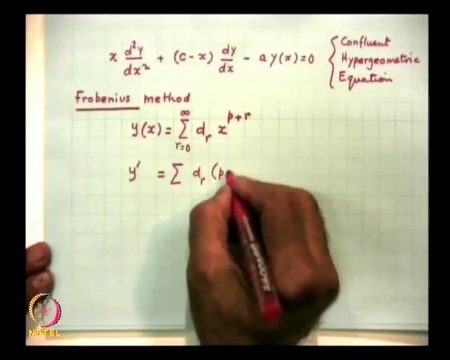 x d²y/dx² + (c-x) dy/dx - a y(x) = 0 { Confluent Hypergeometric Equation
Frobenius method
y(x) = ∞∑r=0 dᵣ x^(p+r)
y' = ∑ dᵣ (p
NPTEL